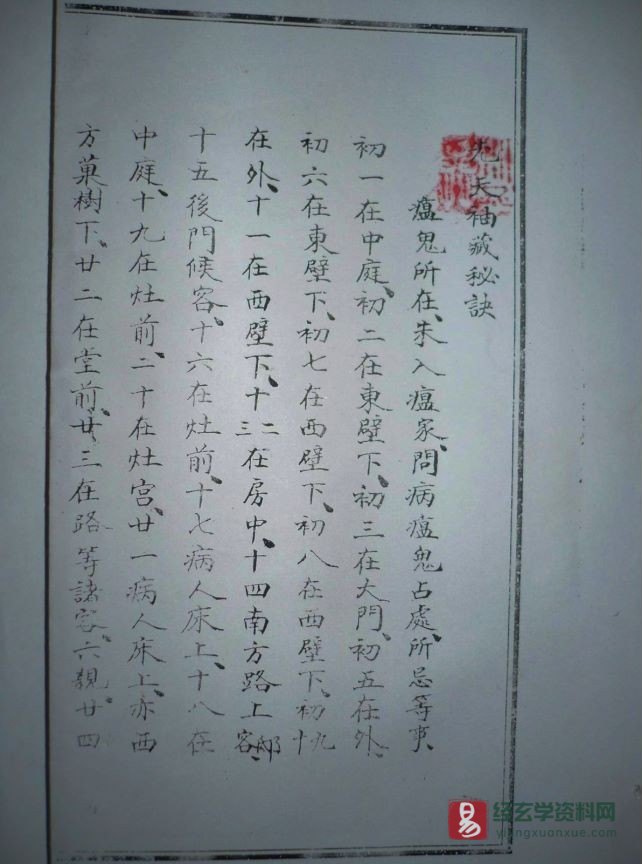 先天袖藏秘訣
瘟鬼所在、未入瘟家、問病瘟鬼占處、所忌等事
初一在中庭、初二在東壁下、初三在大門、初五在外、
初六在東壁下、初七在西壁下、初八在西壁下、初九十
在外、十一在西壁下、十二三在房中、十四南方路上邸客、
十五後門候客、十六在灶前、十七病人床上、十八在
中庭、十九在灶前、二十在灶宫、廿一病人床上、亦西
方菓樹下、廿二在堂前、廿三在路等諸客、六親、廿四
易 经玄学资料网
yixuanxuonxue.com